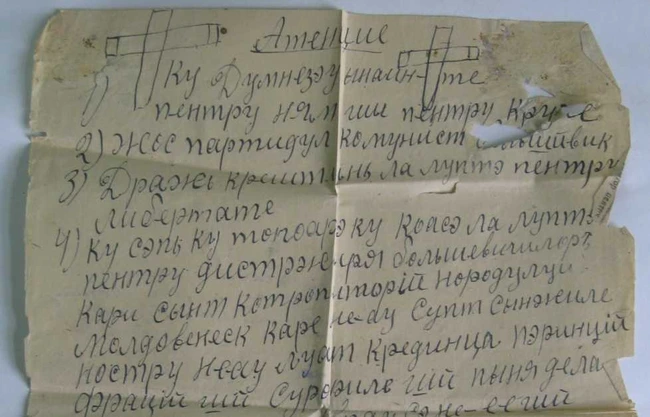 Атенцие
1) Ку Думнезэу ынаин-те
пентру ням ши пентру Круче
2) Жос партидул комунист
3) Дражь крештинь ла луптэ пентру
либертате
4) Ку сэпь ку топоарэ ку коасэ ла луптэ
пентру дистрэжеря большевишилоръ
кари сынт котропиторий нородулуй
Молдовенеск каре не-ау супт сынжиле
ностру не-ау луат крединца пэринций
фраций ший сурориле ший пыня дела